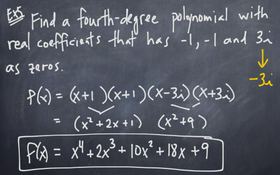 Ex5 Find a fourth-degree polynomial with
real coefficients that has -1, -1 and 3i
as zeros.
↓
-3i
f(x) = (x+1)(x+1)(x-3i)(x+3i)
= (x²+2x+1) (x²+9)
f(x) = x⁴+2x³+10x²+18x+9